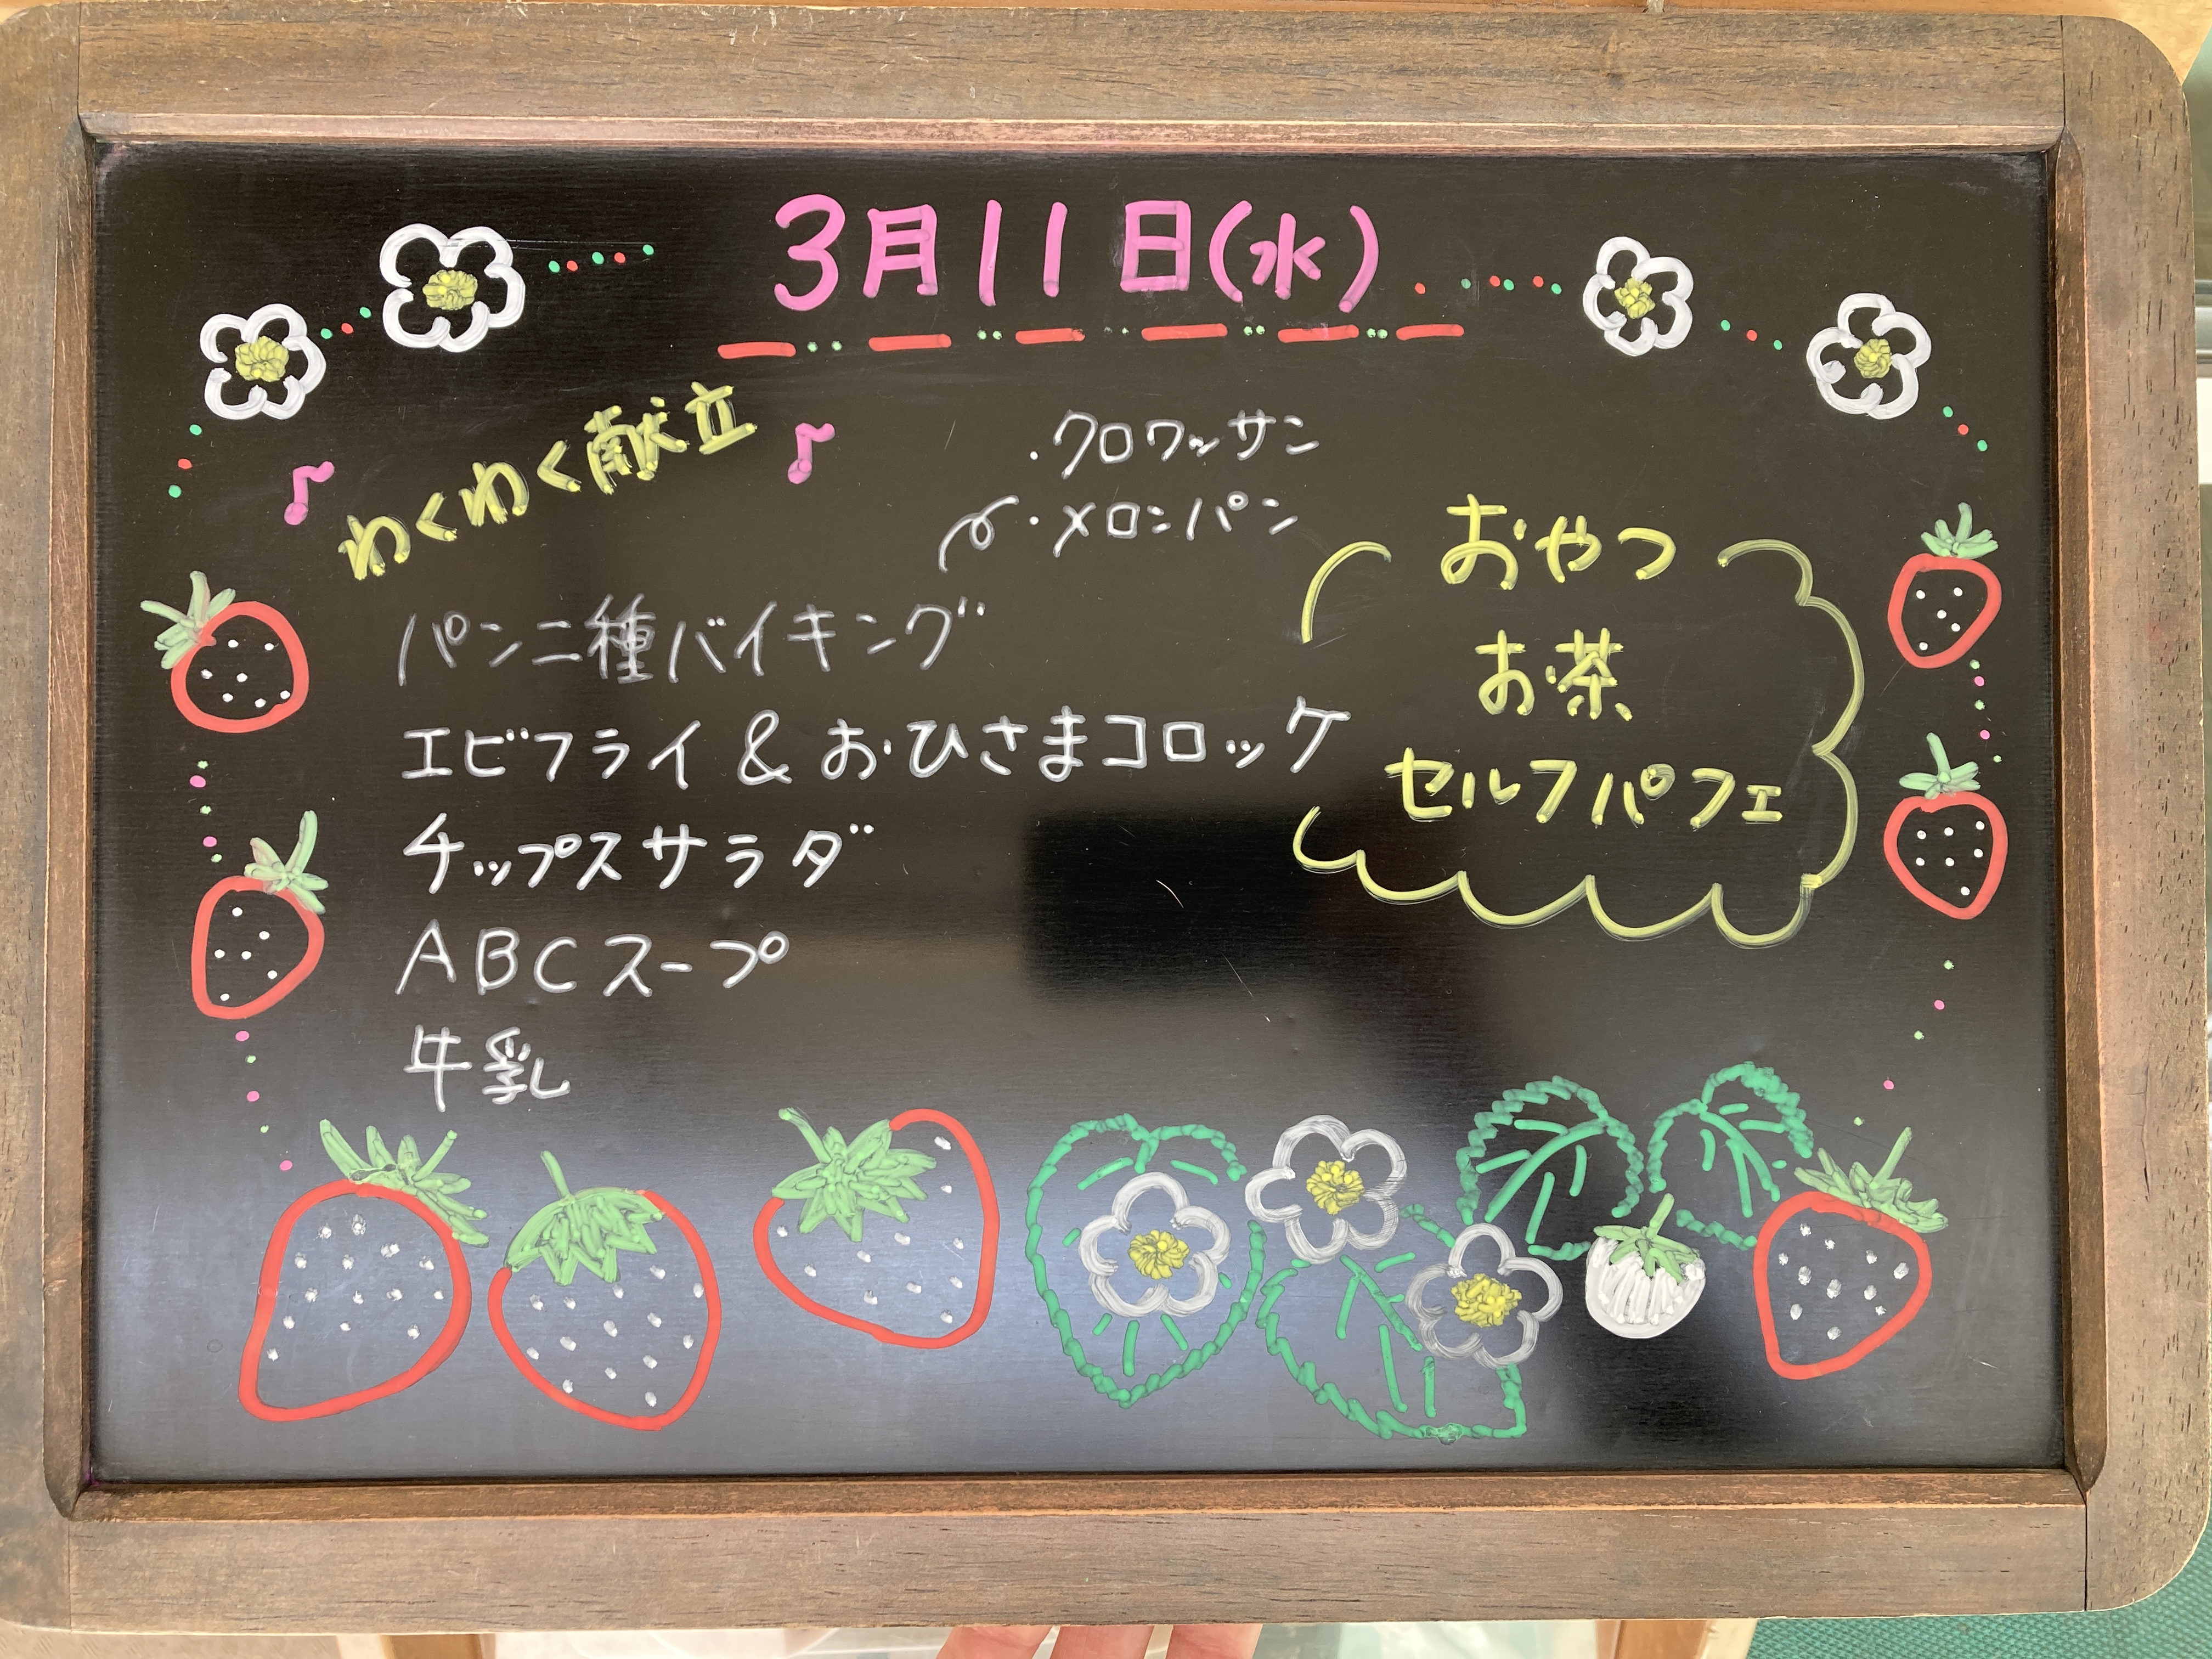 3月11日(水)
わくわく献立
・クロワッサン
・メロンパン
パン二種バイキング
エビフライ&おひさまコロッケ
チップスサラダ
ABCスープ
牛乳
おやつ
お茶
セルフパフェ